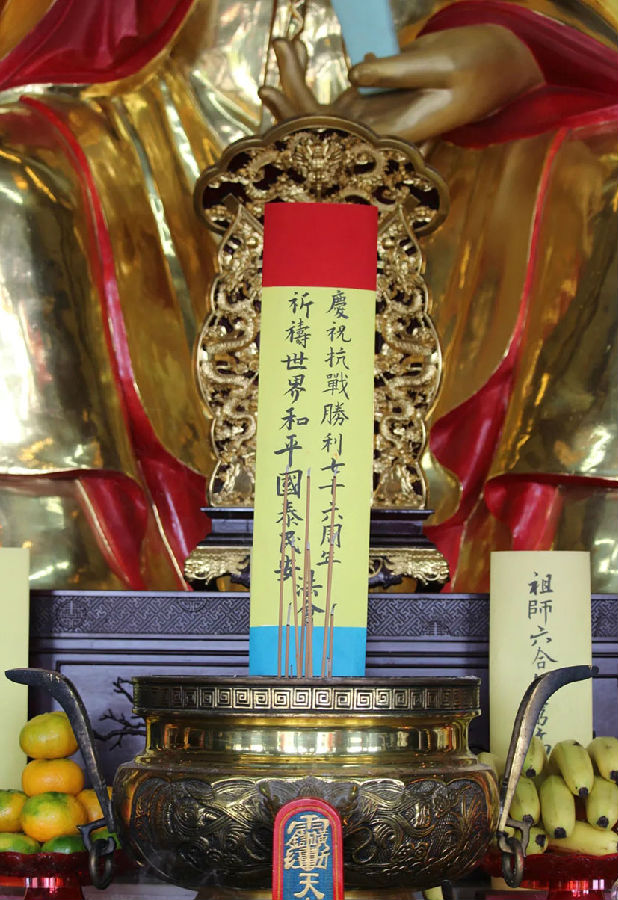 慶祝抗戰勝利七十六周年
祈禱世界和平國泰民安
法會
祖師六合
天